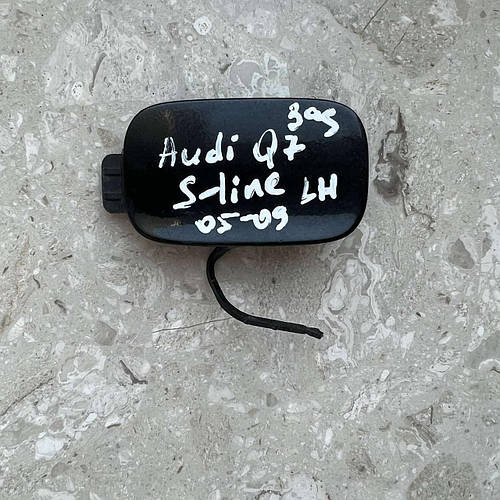 зад
Audi Q7
S-line LH
05-09